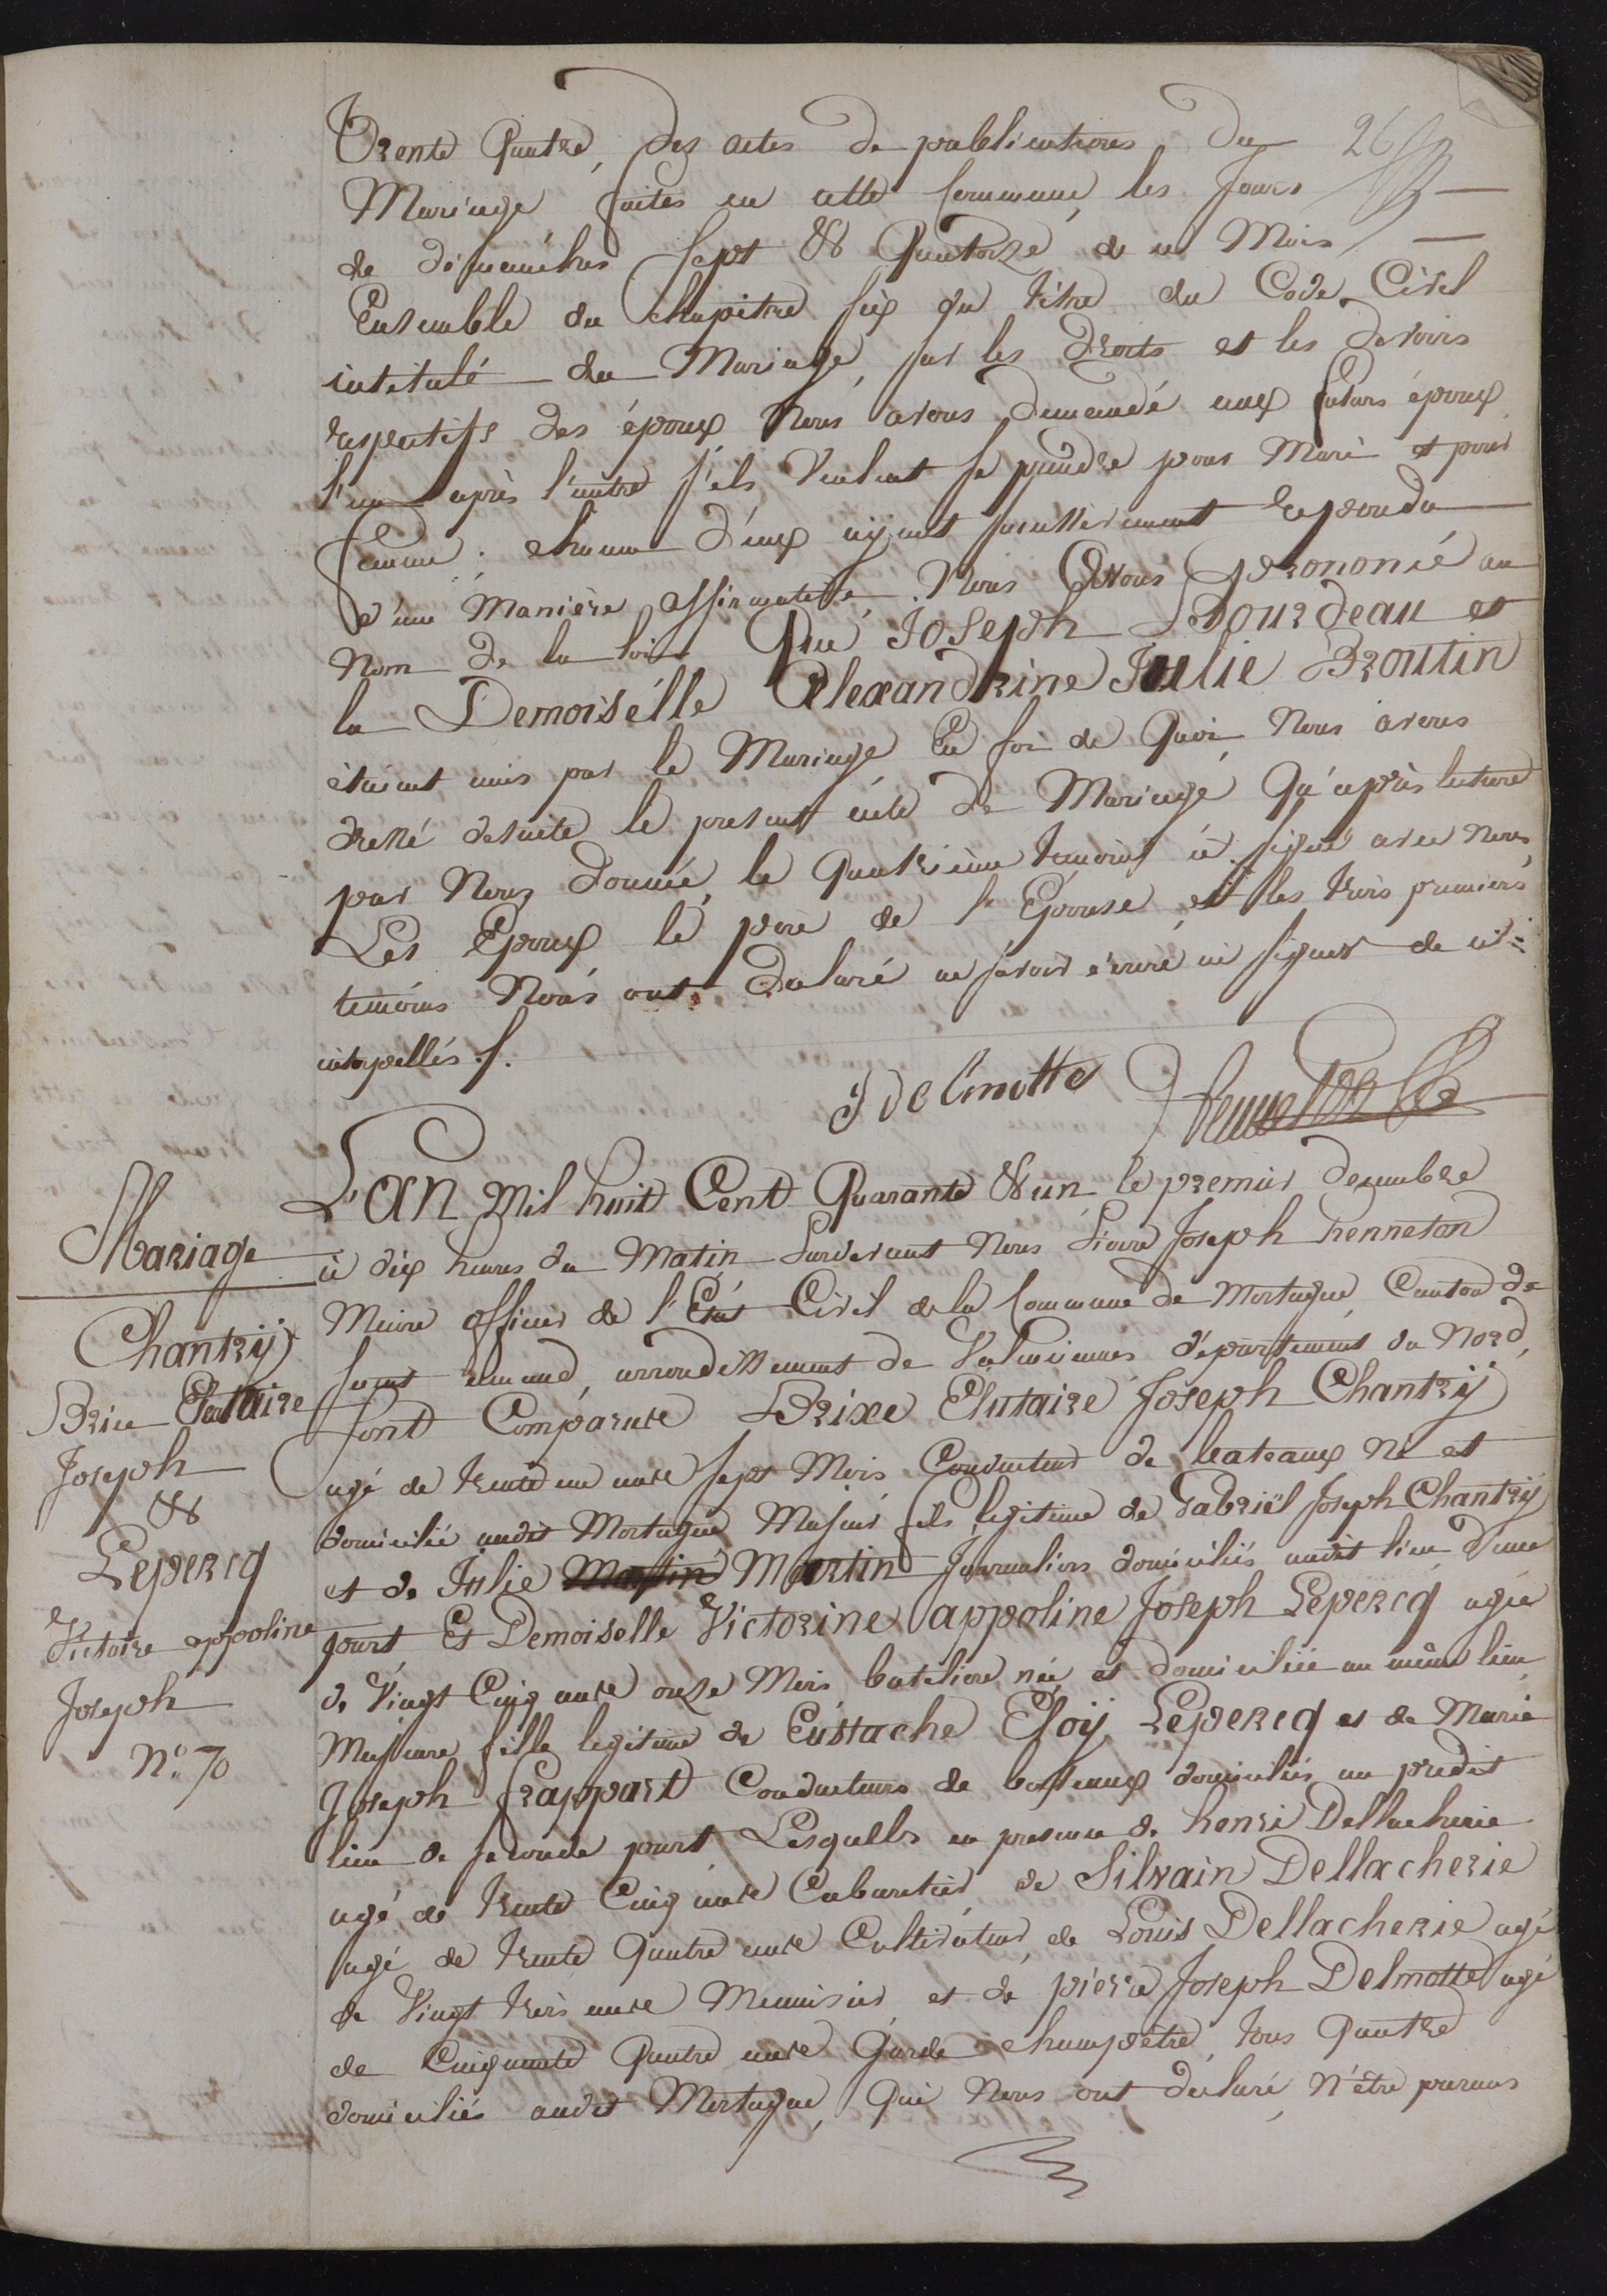 Trente Quatre, des actes de publications du 26
Mariage faites en cette Commune, les Jours
de dimanches Sept & Quatorze de ce Mois
Ensemble du chapitre six du titre du Code Civil
intitulé du Mariage, sur les droits et les devoirs
respectifs des époux Nous avons demandé aux futurs époux
l'un après l'autre s'ils veulent se prendre pour Mari et pour
femme. chacun d'eux ayant sucessivement repondu
d'une Manière affirmative. Nous Avons prononcé au
Nom de la loi Que Joseph Bourdeau et
la Demoisélle Alexandrine Julie Broutin
étaient unis par le Mariage En foi de Quoi Nous avons
dressé desuite le present acte de Mariage Qu'après lecture
par Nous donnée, le Quatrième temoins à signé avec Nous,
Les Epoux le père de l'Epouse, et les trois premiers
temoins Nous ont declaré ne savoir écrire ni signer de ce
interpellés ./.
J Delmotte
Mariage
Chantrÿ
Brice Elutaire
Joseph
&
Lepercq
Victoire appoline
Joseph
N.º 70
L'AN Mil huit Cent Quarante & un le premier decembre
à dix heures du Matin Pardevant Nous Pierre Joseph henneton
Maire officier de l'État Civil de la Commune de Mortagne, Canton de
saint amand, arrondissement de Valenciennes département du Nord,
sont Comparure Brixe Elutaire Joseph Chantrÿ
agé de trente un ans sept Mois Conducteur de bateaux Né et
domicilié audit Mortagne Majeur fils legitime de Gabriël Joseph Chantrÿ
et de Julie Martin Martin Journaliers domiciliés audit lieu d'une
part, Et Demoiselle Victorine appoline Joseph Lepercq agée
de Vingt Cinq ans onze Mois bateliere née et domiciliée au même lieu
Majeure fille legitime de Eustache Eloÿ Lepercq et de Marie
Joseph frappart Conducteurs de bateaux domiciliés au predit
lieu de seconde part, Lesquelles en presence de henri Dellacherie
agé de trente Cinq ans Cabaretier, de Silvain Dellacherie
agé de trente Quatre ans Cultivateur, de Louis Dellacherie agé
de Vingt trois ans Menuisier et de pierre Joseph Delmotte agé
de Cinquante Quatre ans Garde champêtre, tous Quatre
domiciliés audit Mortagne, Qui Nous ont declaré N'être parans